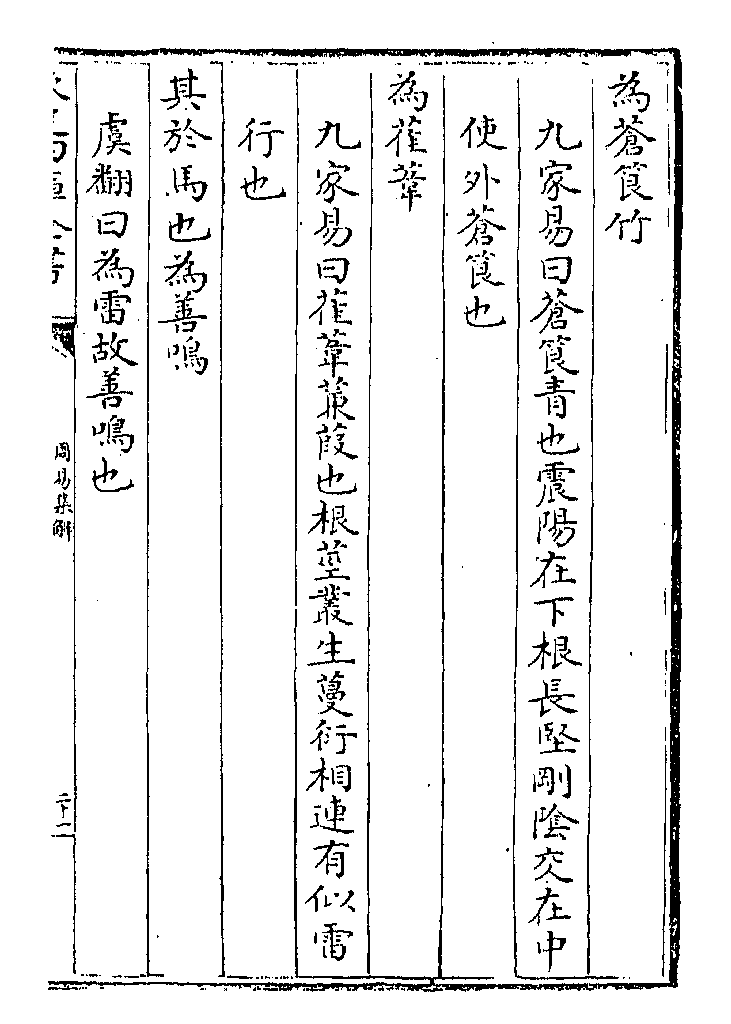 為蒼筤竹
九家易曰蒼筤青也震陽在下根長堅剛陰爻在中
使外蒼筤也
為萑葦
九家易曰萑葦蒹葭也根莖叢生蔓衍相連有似雷
行也
其於馬也為善鳴
虞翻曰為雷故善鳴也
周易集解